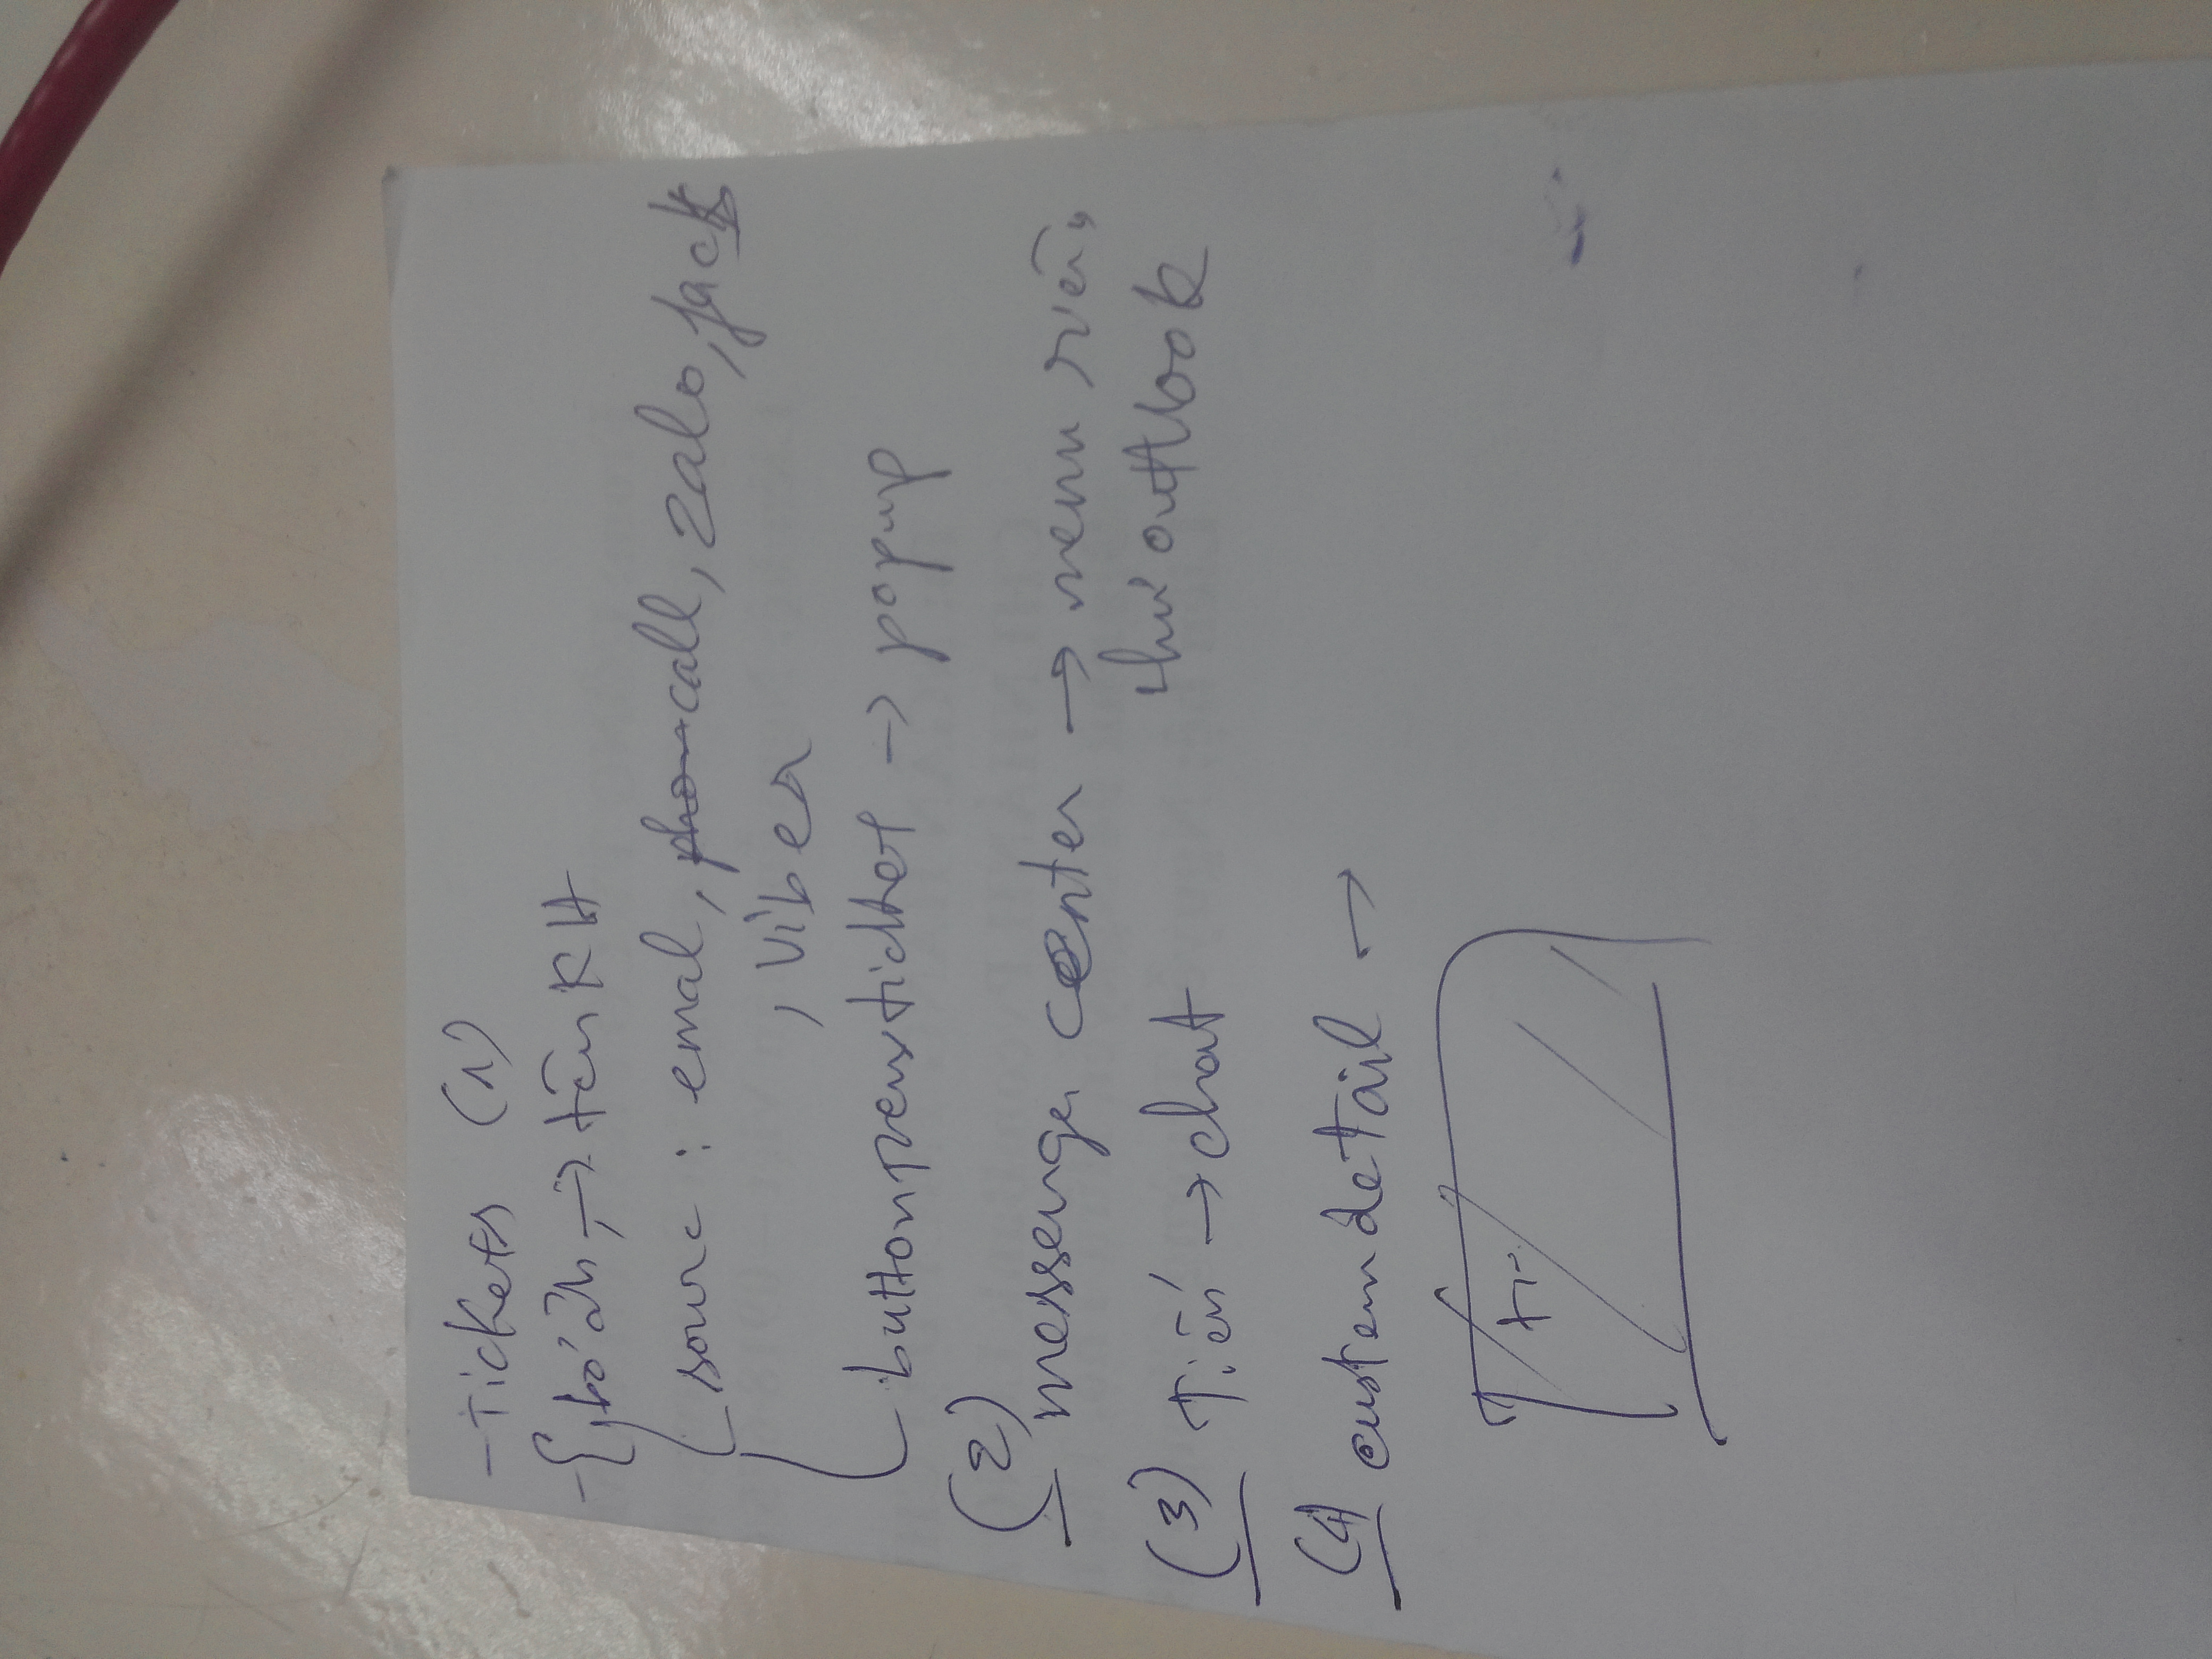 - Tickets (1)
- { bỏ ảnh, → tên KH
sourc : emal, call, zalo, fack
, Viber
button new ticket → popup
(2) messenger center → menu riên,
như outlook
(3) Tiến → chat
(4) custem detail →